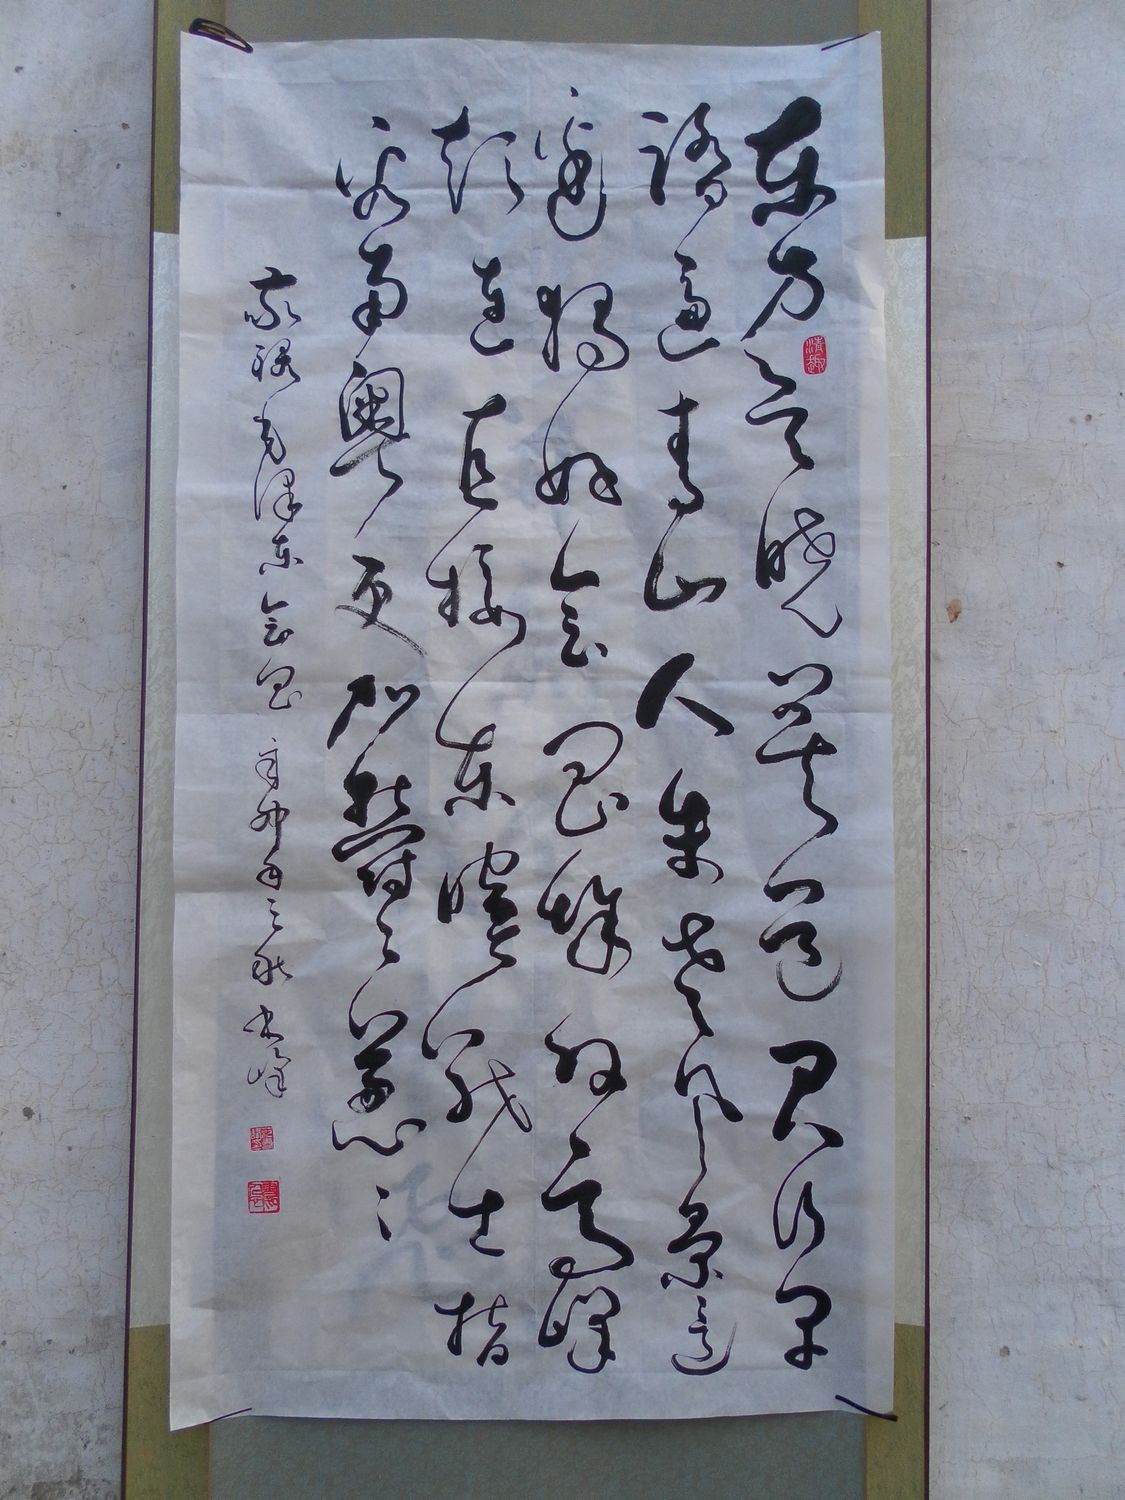 东方欲晓莫道君行早
踏遍青山人未老风景这
边独好会昌城外高峰
颠连直接东溟战士指
看南粤更加郁々葱々
敬录毛泽东会昌 辛卯年之秋 峰
清趣